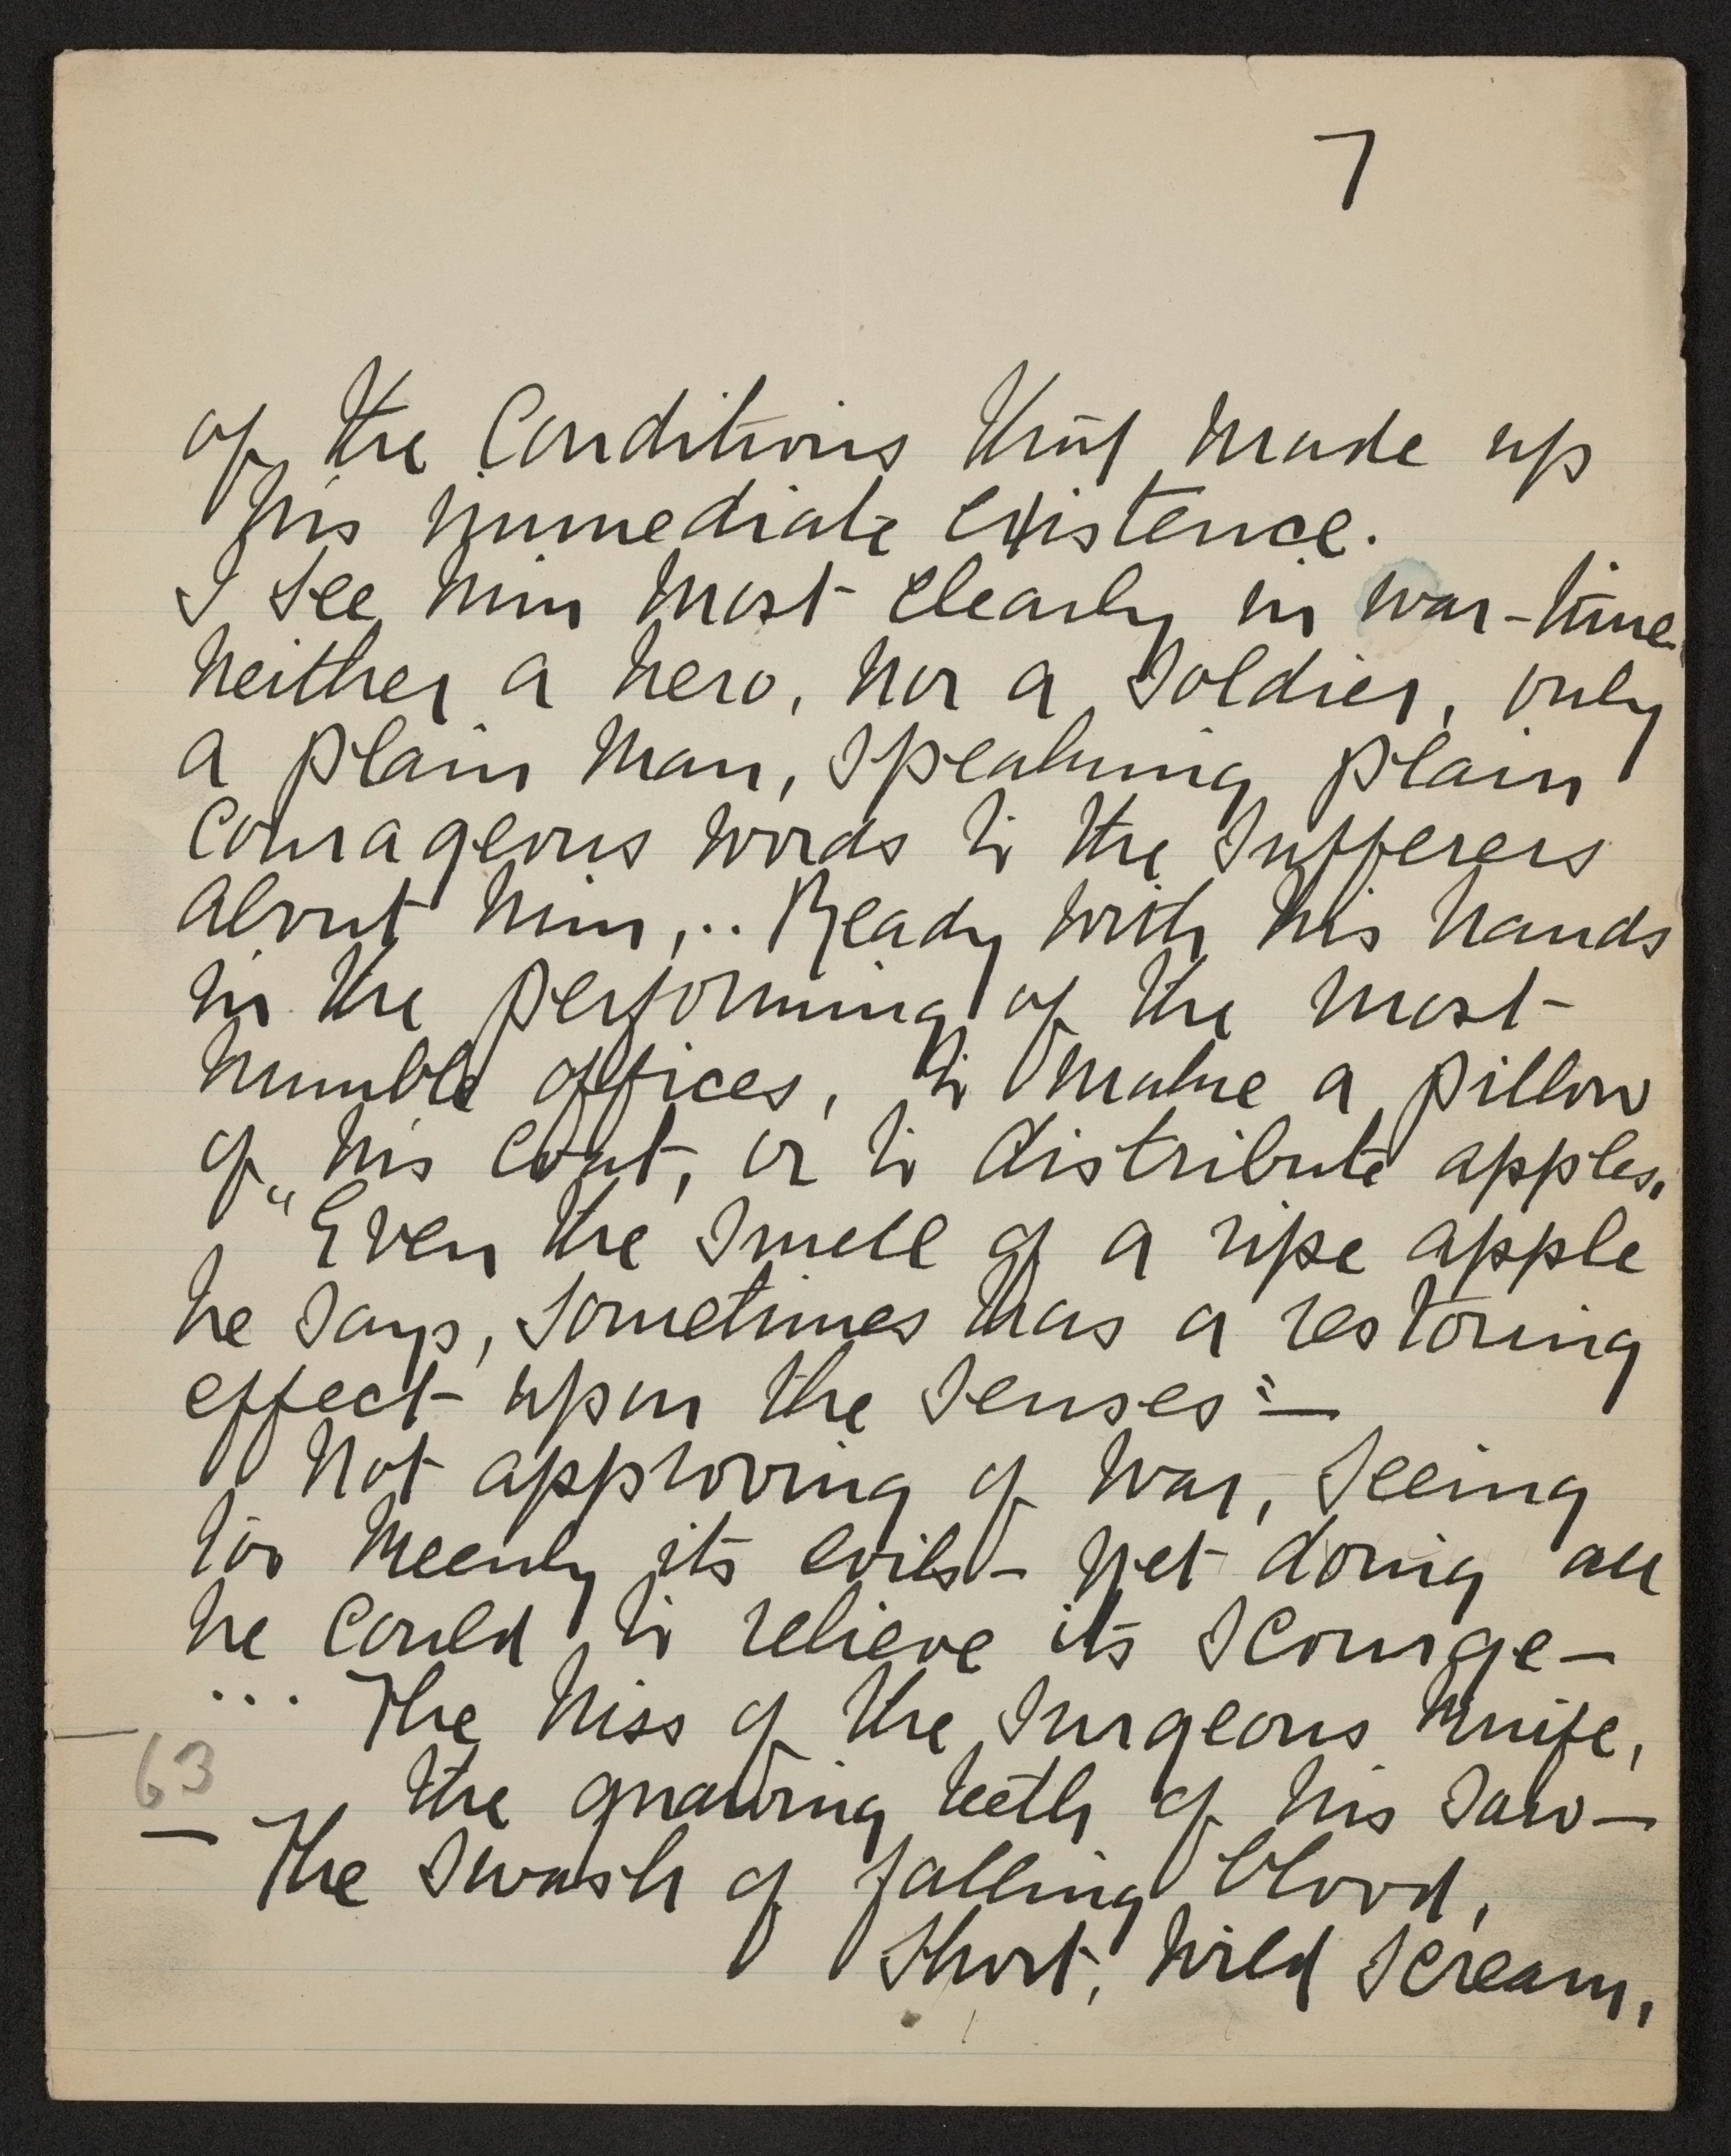 7
of the Conditions that made up
his immediate existence.
I see him most clearly in war-time
neither a hero, nor a soldier, only
a plain man, speaking plain
Courageous words to the sufferers
about him,.. Ready with his hands
in the performing of the most
humble offices, to make a pillow
of his coat, or to distribute apples.
"Even the smell of a ripe apple
he says, sometimes has a restoring
effect upon the senses"—
Not approving of war, seeing
too keenly its evils – yet doing all
he could to relieve its scourge –
... The hiss of the surgeons knife,
63
the gnawing teeth of his saw –
The swash of falling blood,
short, wild scream,